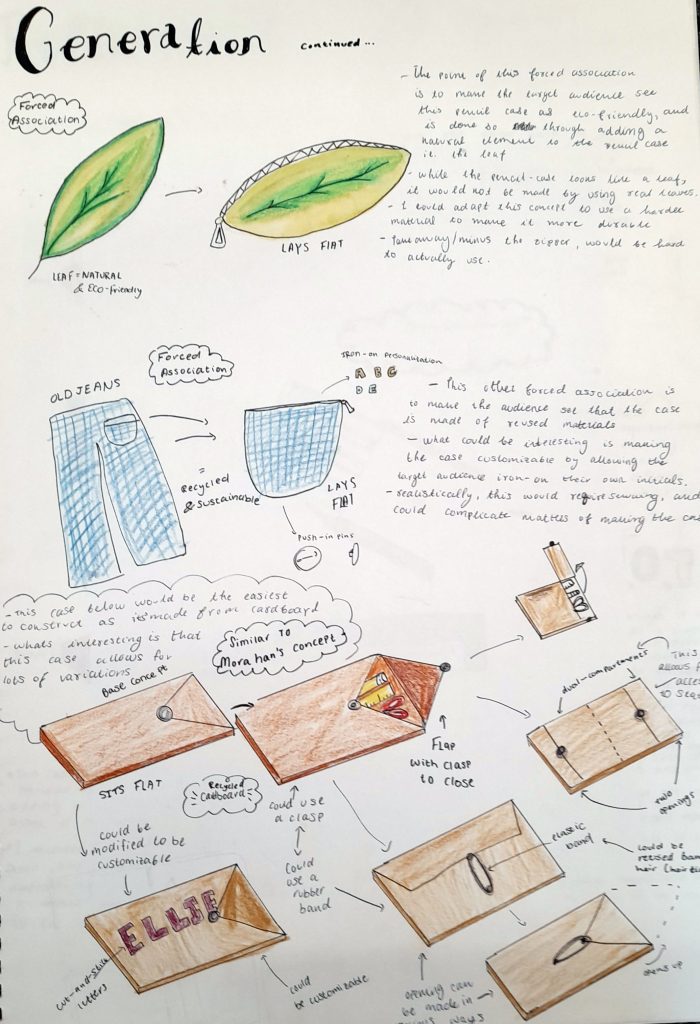 Generation continued...
Forced
Association
- The point of this forced association
is to make the target audience see
this pencil case as eco-friendly, and
is done so through adding a
natural element to the pencil case
i.e. the leaf
- While the pencil-case looks like a leaf,
it would not be made by using real leaves.
- I could adapt this concept to use a harder
material to make it more durable
- Takeaway/minus the zipper, would be hard
to actually use.
LAYS FLAT
LEAF = NATURAL
& ECO-friendly
Forced
Association
OLD JEANS
Iron-on Personalisation
A B C
D E
= Recycled
& Sustainable
LAYS
FLAT
Push-in pins
- This other forced association is
to make the audience see that the case
is made of reused materials
- What could be interesting is making
the case customizable by allowing the
target audience iron-on their own initials.
- realistically, this would require sewing, and
could complicate matters of making the
- This case below would be the easiest
to construct as it's made from cardboard
- whats interesting is that
this case allows for
lots of variations
Similar to
Morahan's concept
Base concept
SITS FLAT
Recycled
Cardboard
Flap
with clasp
to close
dual-compartments
This
allows
to
two
openings
could be
modified to be
customizable
could use
a clasp
could
use a
rubber
band
elastic
band
could be
reused
hair
ELLIE
cut-and-stick
letters
could
be customizable
opening can
be made in
ways
opens up